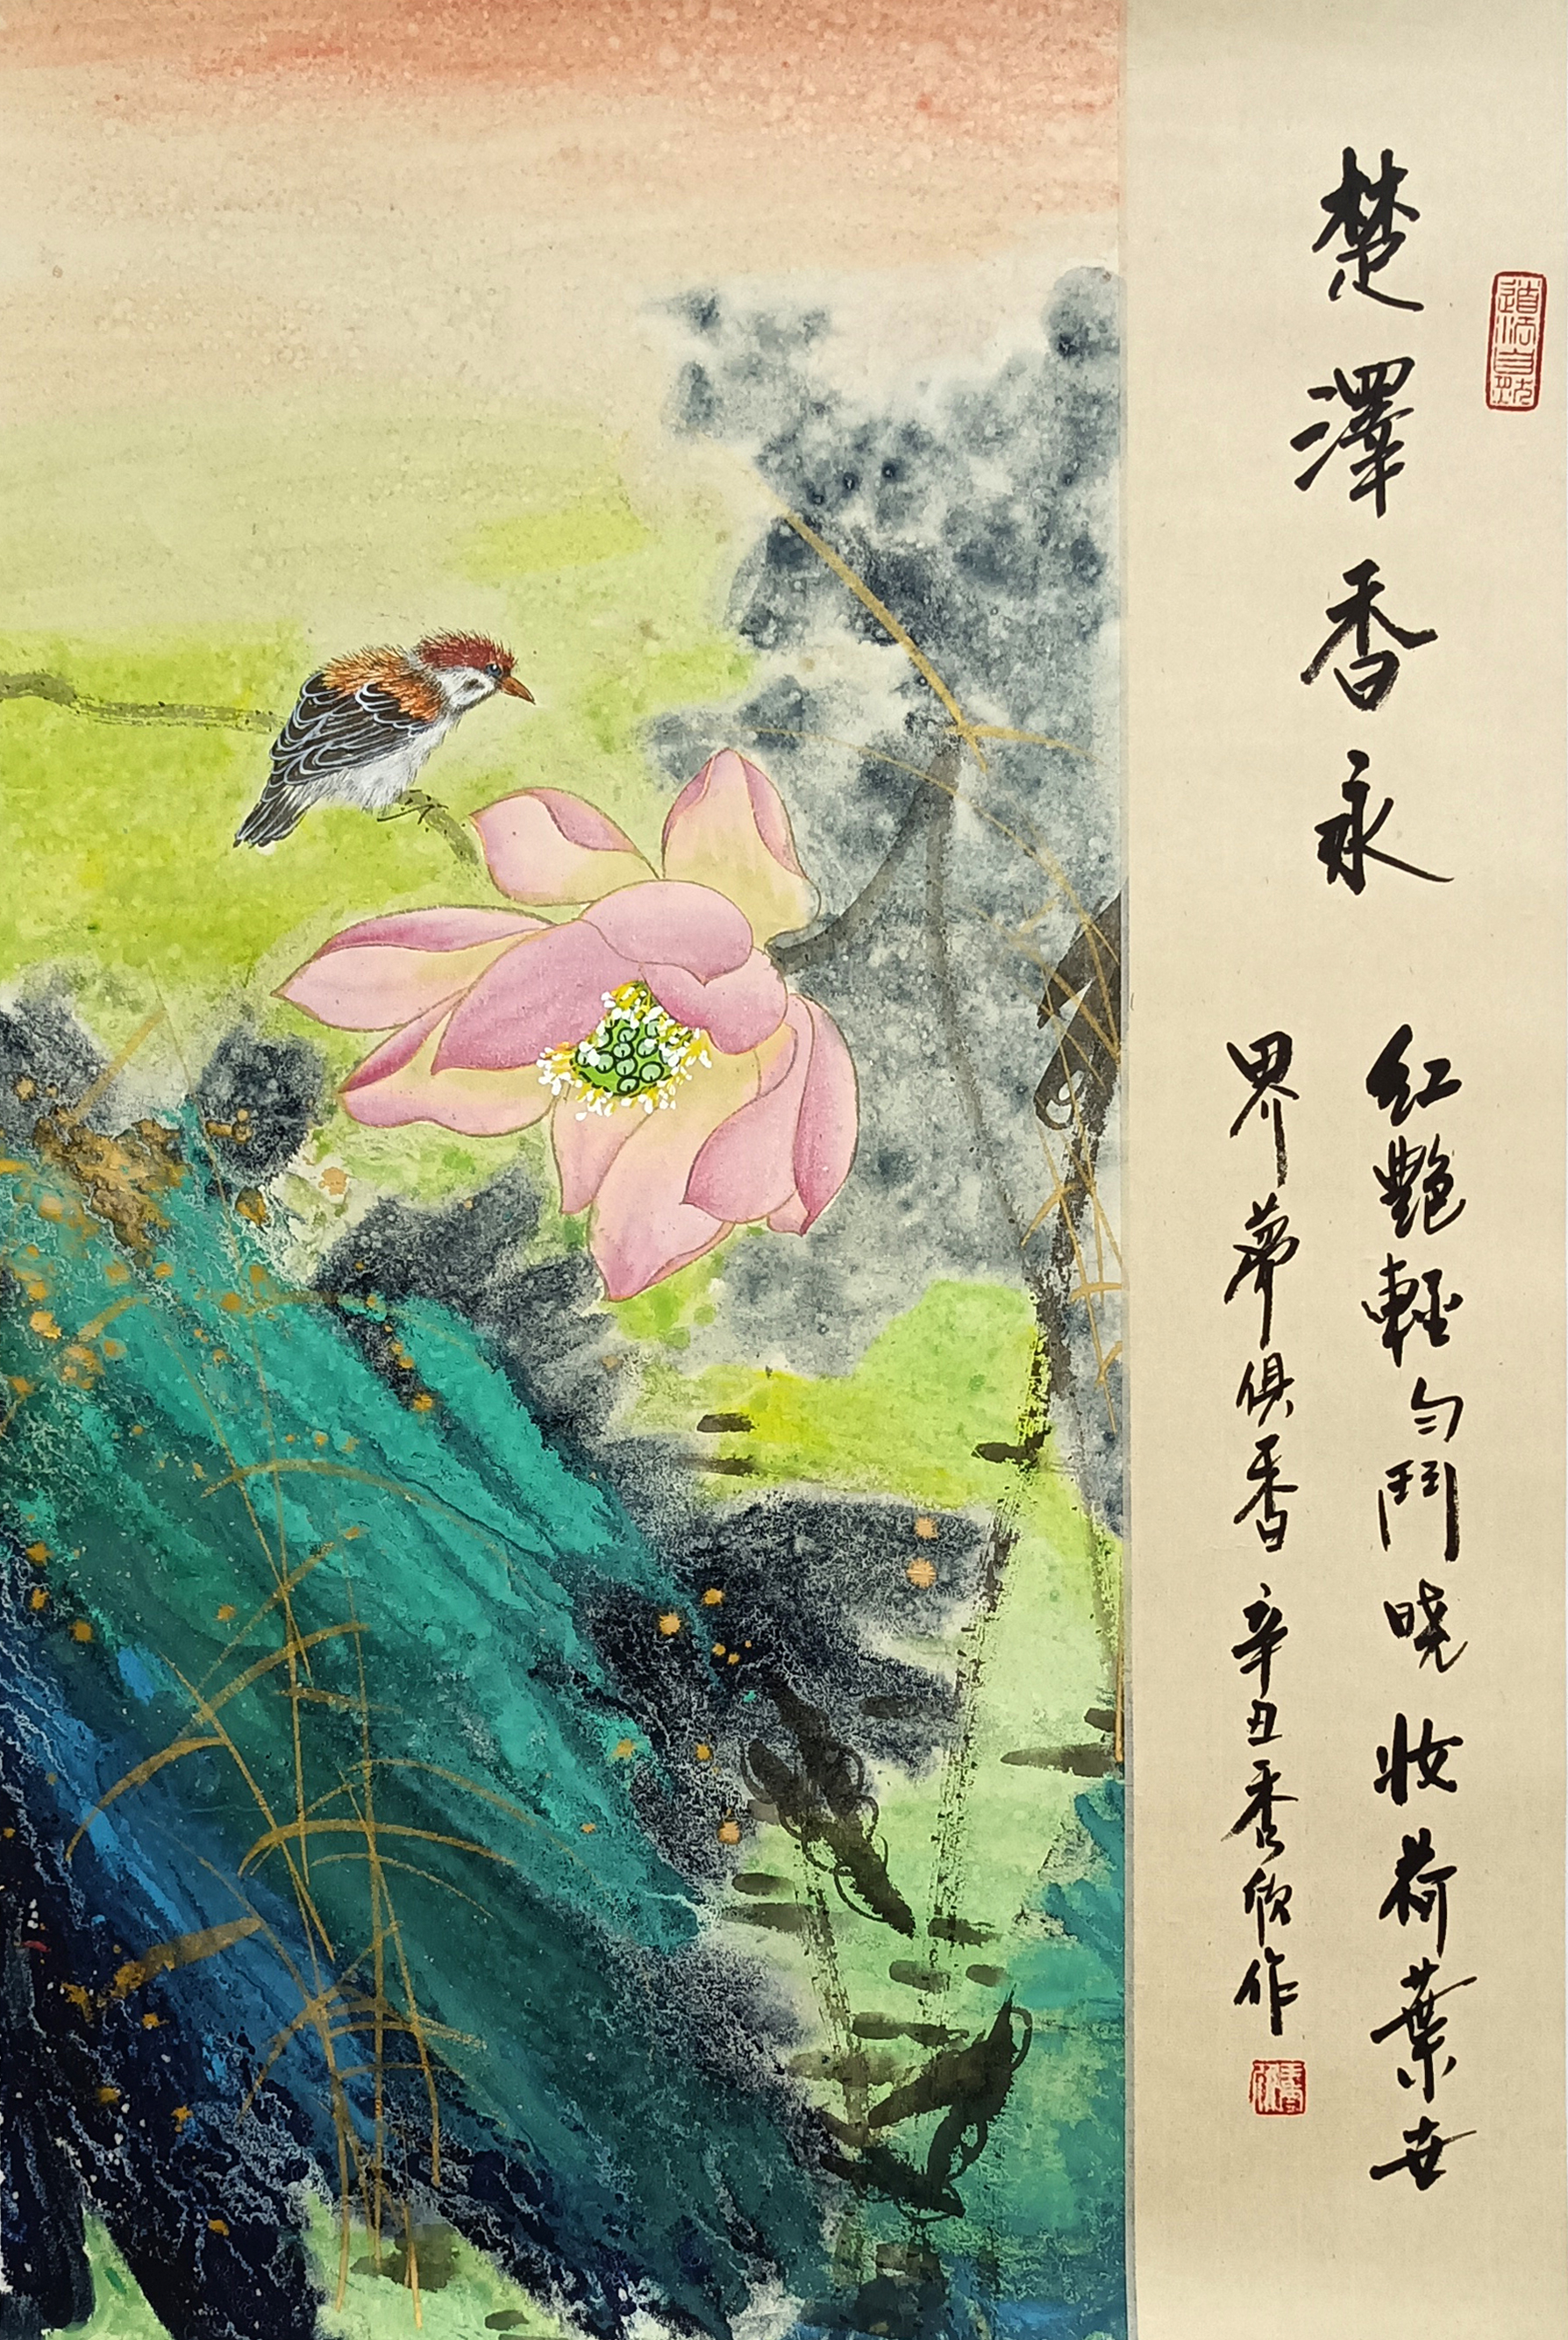 道法自然
楚澤香永
紅艷輕勻鬥曉妝荷葉世
界夢俱香 辛丑秀欣作